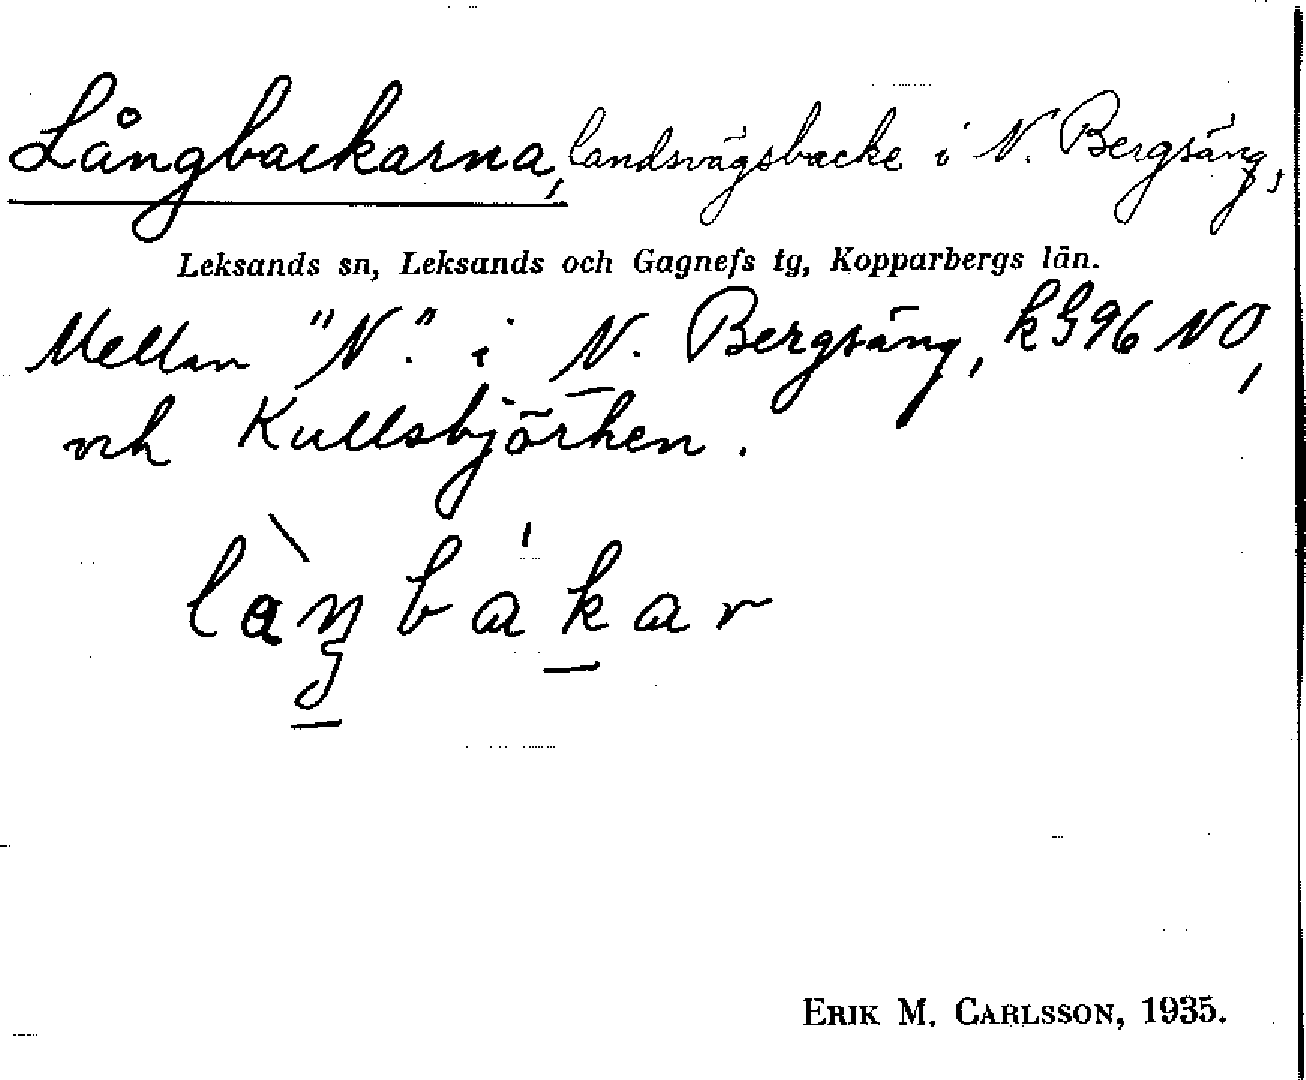 Långbackarna, landsvägsbacke i N. Bergsäng,
Leksands sn, Leksands och Gagnefs tg, Kopparbergs län.
Mellan "N." i N. Bergsäng, NO,
och Kullsbjörken.
làŋbákar
ERIK M. CARLSSON, 1935.